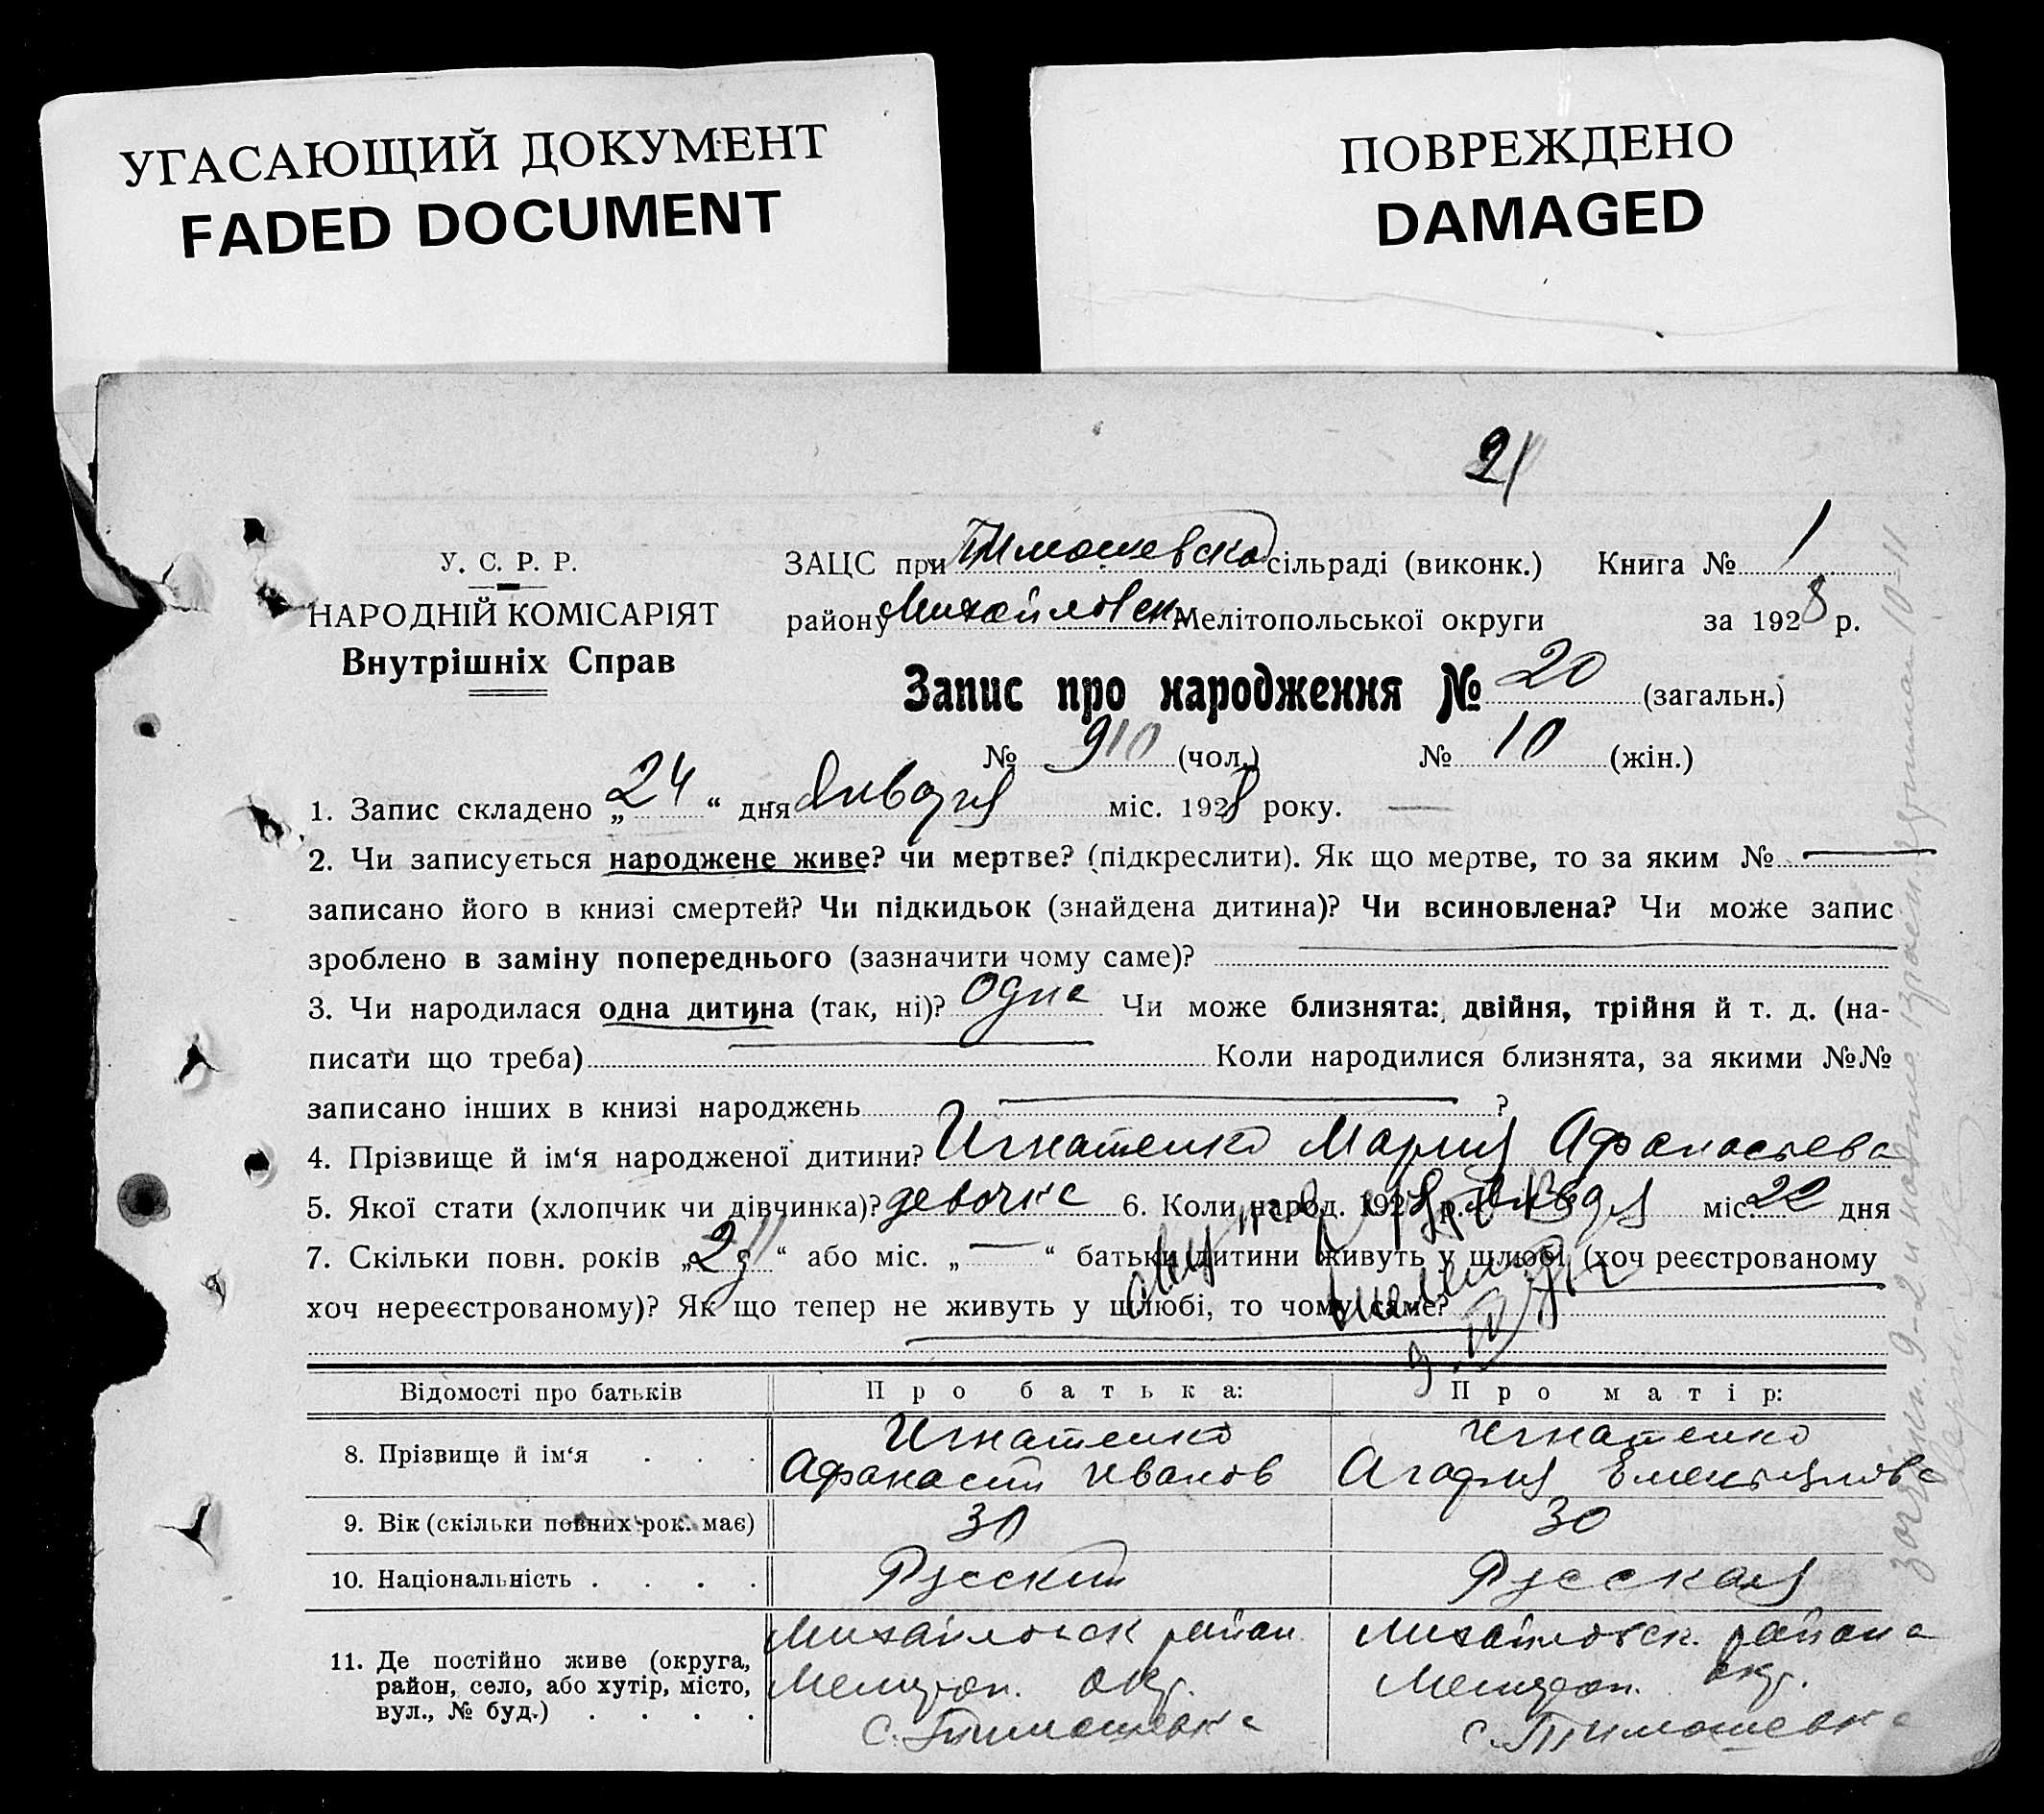 УГАСАЮЩИЙ ДОКУМЕНТ
FADED DOCUMENT
ПОВРЕЖДЕНО
DAMAGED
21
У. С. Р. Р.
НАРОДНІЙ КОМІСАРІЯТ
Внутрішніх Справ
ЗАЦС при Тимошевской сільраді (виконк.) Книга № 1
району Михайловск. Мелітопольської округи за 1928 р.
Запис про народження № 20 (загальн.)
№ 910 (чол.) № 10 (жін.)
1. Запис складено „24“ дня Января міс. 1928 року.
2. Чи записується народжене живе? чи мертве? (підкреслити). Як що мертве, то за яким №
записано його в книзі смертей? Чи підкидьок (знайдена дитина)? Чи всиновлена? Чи може запис
зроблено в заміну попереднього (зазначити чому саме)?
3. Чи народилася одна дитина (так, ні)? Одна Чи може близнята: двійня, трійня й т. д. (на-
писати що треба) Коли народилися близнята, за якими №№
записано інших в книзі народжень ?
4. Прізвище й ім‘я народженої дитини? Игнатенко Мария Афанасьева
5. Якої стати (хлопчик чи дівчинка)? девочка 6. Коли народ. 1928 р. Января міс. 22 дня
7. Скільки повн. років „2“ або міс. „—“ батьки дитини живуть у шлюбі (хоч реєстрованому
хоч нереєстрованому)? Як що тепер не живуть у шлюбі, то чому саме?
Відомості про батьків Про батька: Про матір:
8. Прізвище й ім‘я . . . Игнатенко Афанасий Иванов Игнатенко Агафия Емельянова
9. Вік (скільки повних рок. має) 30 30
10. Національність . . . . Русский Русская
11. Де постійно живе (округа, район, село, або хутір, місто, вул., № буд.) . . . .
Михайловск район Михайловск. района
Мелитоп. окр. Мелитоп. окр.
с. Тимошевка с. Тимошевка